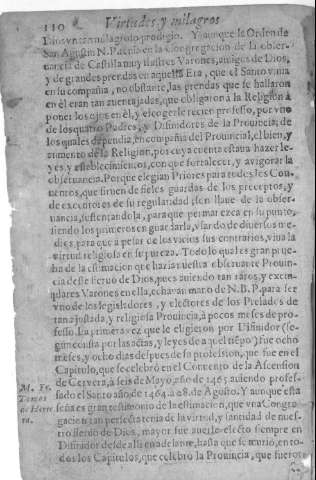 110 Virtudes, y milagros
Dios vn tan milagroso prodigio. Y aunque la Orden de
San Agustin N. P. tenia en la Congregacion de la obser-
uancia de Castilla muy ilustres Varones, amigos de Dios,
y de grandes prendas en aquella Era, que el Santo viuia
en su compañia, no obstante, las prendas que se hallaron
en èl eran tan auentajadas, que obligaron à la Religion à
poner los ojos en èl, y elegirle recien professo, por vno
de los quatro Padres, y Difinidores de la Prouincia; de
los quales dependia, en compañia del Prouincial, el bien, y
aumento de la Religion, por cuya cuenta estaua hazer le-
yes, y establecimientos, con que fortalecer, y avigorar la
obseruancia. Porque elegian Priores para todos los Con-
uentos, que siruen de fieles guardas de los preceptos, y
de executores de su regularidad; son llaue de la obser-
uancia, sustentandola, para que permanezca en su punto,
siendo los primeros en guardarla, vsando de diuersos me-
dios, para que à pesar de los vicios sus contrarios, viua la
virtud religiosa en su pureza. Todo lo qual es gran prue-
ba de la estimacion que hazia nuestra obseruante Prouin-
cia deste sieruo de Dios, pues auiendo tan raros, y exem-
plares Varones en ella, echauan mano de N. B. P. para ser
vno de los legisladores, y electores de los Prelados de
tan ajustada, y religiosa Prouincia, à pocos meses de pro-
fesso. La primera vez que le eligieron por Difinidor (se-
gun consta por las actas, y leyes de aquel tiẽpo) fue ocho
meses, y ocho dias despues de su profession, que fue en el
Capitulo, que se celebrò en el Conuento de la Ascension
de Cervera, à seis de Mayo, año de 1465 auiendo profes-
M. Fr. sado el Santo año de 1464. à 28. de Agosto. Y aunque esta
Tomas fecha es gran testimonio de la estimacion, que vna Congre-
de Herre gacion tan perfecta tenia de la virtud, y santidad de nues-
ra. tro sieruo de Dios, mayor fue auerle electo siempre en
Difinidor desde alli en adelante, hasta que se murio, en to-
dos los Capitulos, que celebrò la Prouincia, que fueron